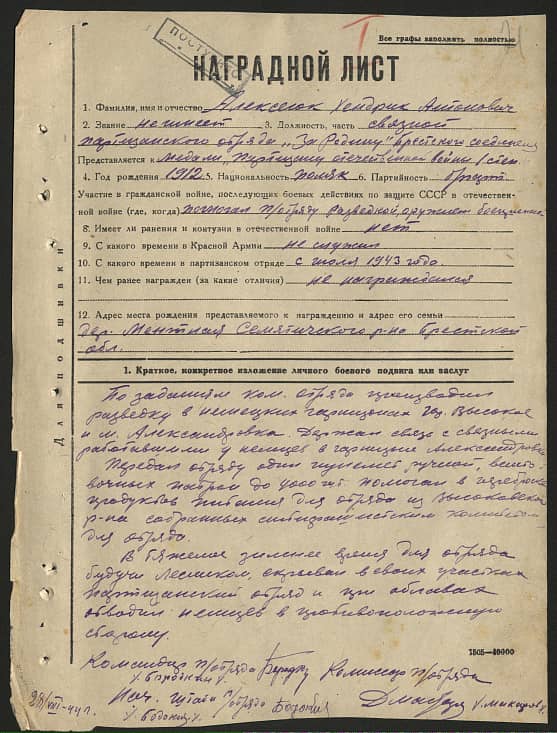 Все графы заполнить полностью
НАГРАДНОЙ ЛИСТ
1. Фамилия, имя и отчество Алексеюк Хендрик Антонович
2. Звание не имеет 3. Должность, часть связной
партизанского отряда „За Родину" Брестского соединения
Представляется к медали „Партизану отечественной войны I степ.
4. Год рождения 1912 5. Национальность поляк 6. Партийность
Участие в гражданской войне, последующих боевых действиях по защите СССР в отечествен-
ной войне (где, когда) помогал п/отряду разведкой, оружием
8. Имеет ли ранения и контузии в отечественной войне нет
9. С какого времени в Красной Армии не служил
10. С какого времени в партизанском отряде с июля 1943 года.
11. Чем ранее награжден (за какие отличия) не награждался
12. Адрес места рождения представляемого к награждению и адрес его семьи
дер. Ментная Семятичского р-на Брестской
обл.
Для подшивки
1. Краткое, конкретное изложение личного боевого подвига или заслуг
По заданиям ком. отряда производил
разведку в немецких гарнизонах Высокое
и м. Александровка. Держал связь с связными
работавшими у немцев в гарнизоне Александровка
Передал отряду один пулемет ручной,
патрон до помогал в
продуктов питания для отряда из Высоковского
р-на собранных антифашистским комитетом
для отряда.
В тяжелое зимнее время для отряда
будучи лесником, скрывал в своих участках
партизанский отряд и при облавах
отводил немцев в противоположную
сторону.
1505—10000
Командир п/отряда Комиссар п/отряда
Нач. штаба п/отряда
28/VIII-44 г.